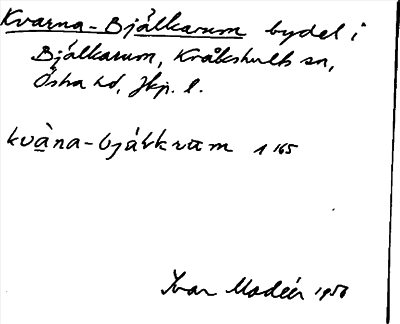 Kvarna-Bjälkarum bydel i
Bjälkarum, Kråkshults sn,
Östra hd, Jkp. l.
kvàna-bjálkrum 1 165
Ivar Modéer 1950